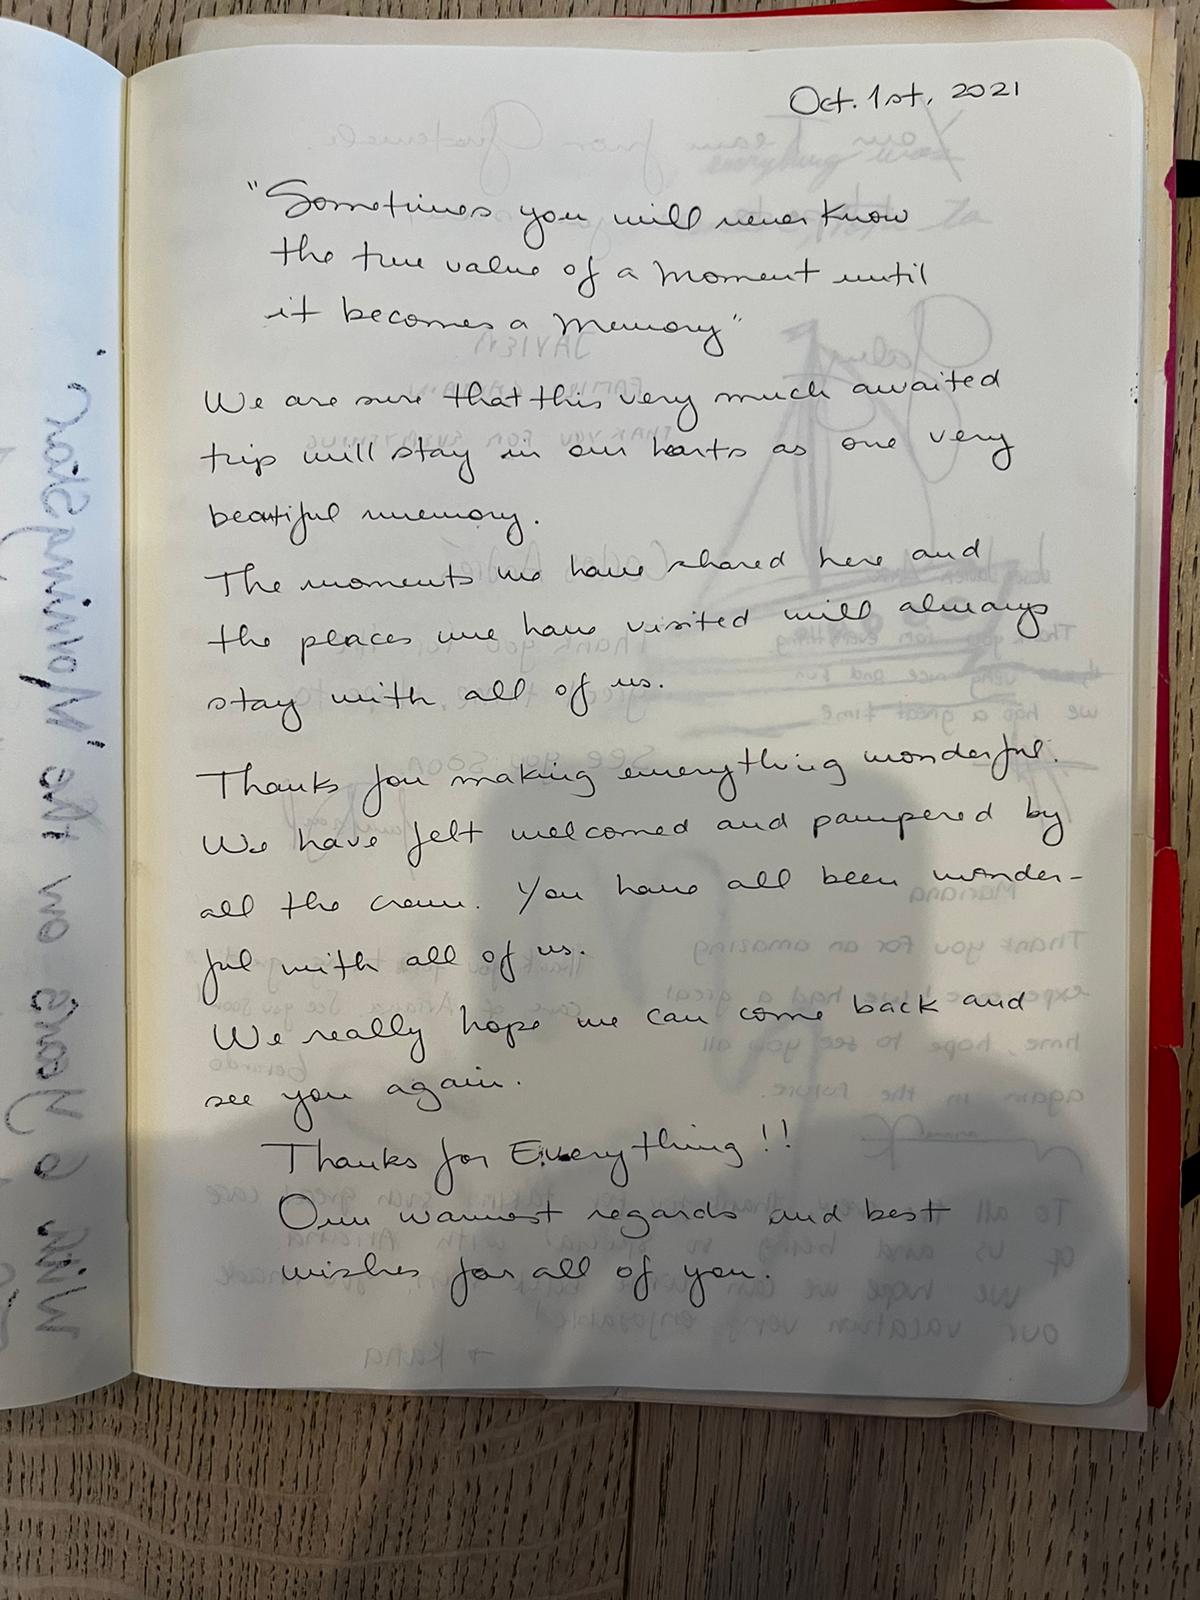 Oct. 1st, 2021
"Sometimes you will never know
the true value of a moment until
it becomes a memory"
We are sure that this very much awaited
trip will stay in our hearts as one very
beautiful memory.
The moments we have shared here and
the places we have visited will always
stay with all of us.
Thanks for making everything wonderful.
We have felt welcomed and pampered by
all the crew. You have all been wonder-
ful with all of us.
We really hope we can come back and
see you again.
Thanks for Everything!!
Our warmest regards and best
wishes for all of you.